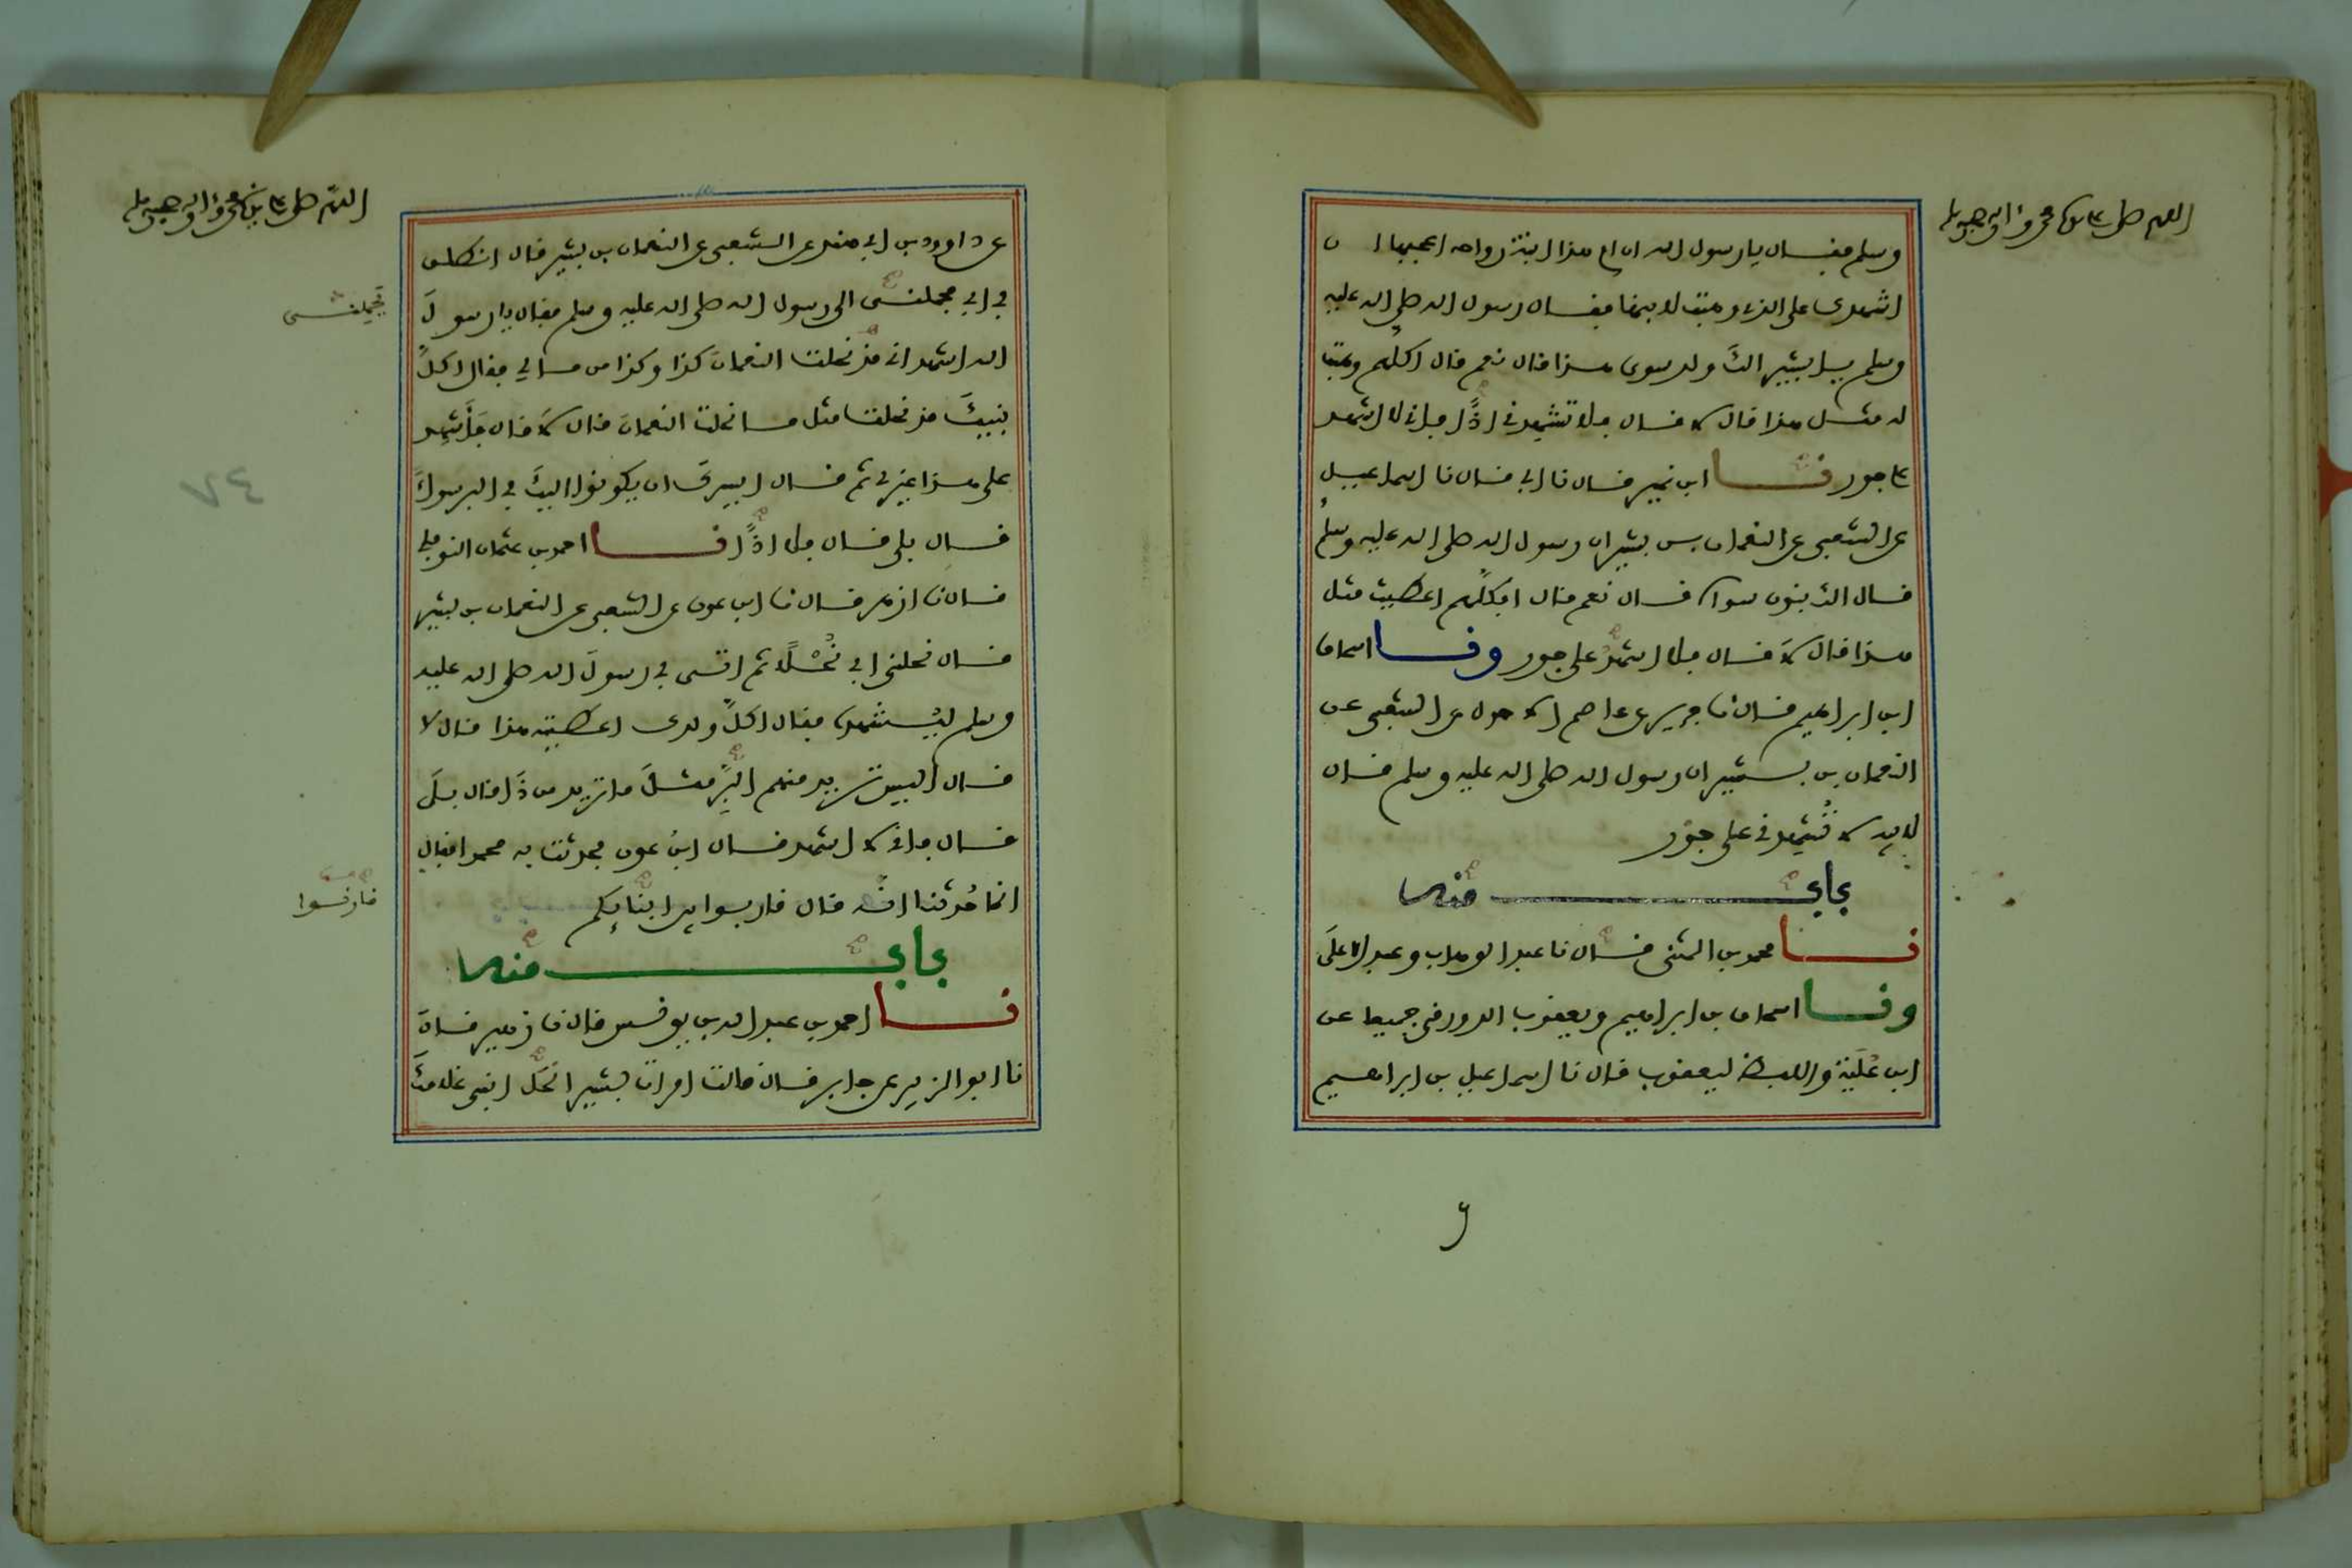 اللهم صل على سيدنا محمد وآله وصحبه وسلم
وسلم فقال يا رسول الله ان ام هذا ابنة رواحة اعجبها ان
اشهدك على الذي وهبت لابنها فقال رسول الله صلى الله عليه
وسلم يا بشير الكَ ولد سوى هذا قال نعم قال اكلَّهم وهبت
له مثل هذا قال لا قال فلا تشهدني اذًا فإني لا اشهد
على جور نا ابن نمير قال نا ابي قال نا اسماعيل
عن الشعبي عن النعمان بن بشير ان رسول الله صلى الله عليه وسلم
قال الك بنون سواه قال نعم قال افكلَّهم اعطيت مثل
هذا قال لا قال فلا اشهدُ على جور ونا اسحاق
ابن ابراهيم قال نا جرير عن عاصم الاحول عن الشعبي عن
النعمان بن بشير ان رسول الله صلى الله عليه وسلم قال
لابيه لا تُشهدني على جَوْر
باب منه
نا محمد بن المثنى قال نا عبد الوهاب وعبد الاعلَى
ونا اسحاق بن ابراهيم ويعقوب الدورقي جميعا عن
ابن عُلَيَّة واللفظ ليعقوب قال نا اسماعيل بن ابراهيم
اللهم صل على سيدنا محمد وآله وصحبه وسلم
عن داوود بن ابي هند عن الشعبي عن النعمان بن بشير قال انطلق
بي ابي يحملني الى رسول الله صلى الله عليه وسلم فقال يا رسولَ
الله اشهد اني قد نحلت النعمانَ كذا وكذا من مالي فقال اكلَّ
بنيكَ قد نحلت مثل ما نحلت النعمانَ قال لا قال فَأَشْهِد
على هذا غيري ثم قال ايسركَ ان يكونوا اليكَ في البر سواءً
قال بلى قال فلا اذًا نا احمد بن عثمان النوفلي
قال نا ازهر قال نا ابن عون عن الشعبي عن النعمان بن بشير
قال نحلني ابي نُحْلًا ثم اتى بي رسولَ الله صلى الله عليه
وسلم ليُشهده فقال اكلَّ ولدك اعطيته هذا قال لا
قال اليس تريد منهم البِرَّ مثلَ ما تريد من ذَا قال بلَى
قال فاني لا اشهد قال ابنُ عون فحدثت به محمدا فقال
انما حُدثنا انَّه قال قاربوا بين ابنَائِكم
باب منه
نا احمد بن عبد الله بن يونس قال نا زهير قال
نا ابو الزبير عن جابر قال قالت امراة بشير انحَل ابني غلامكَ
يحملني
قارنوا
٧٤
و